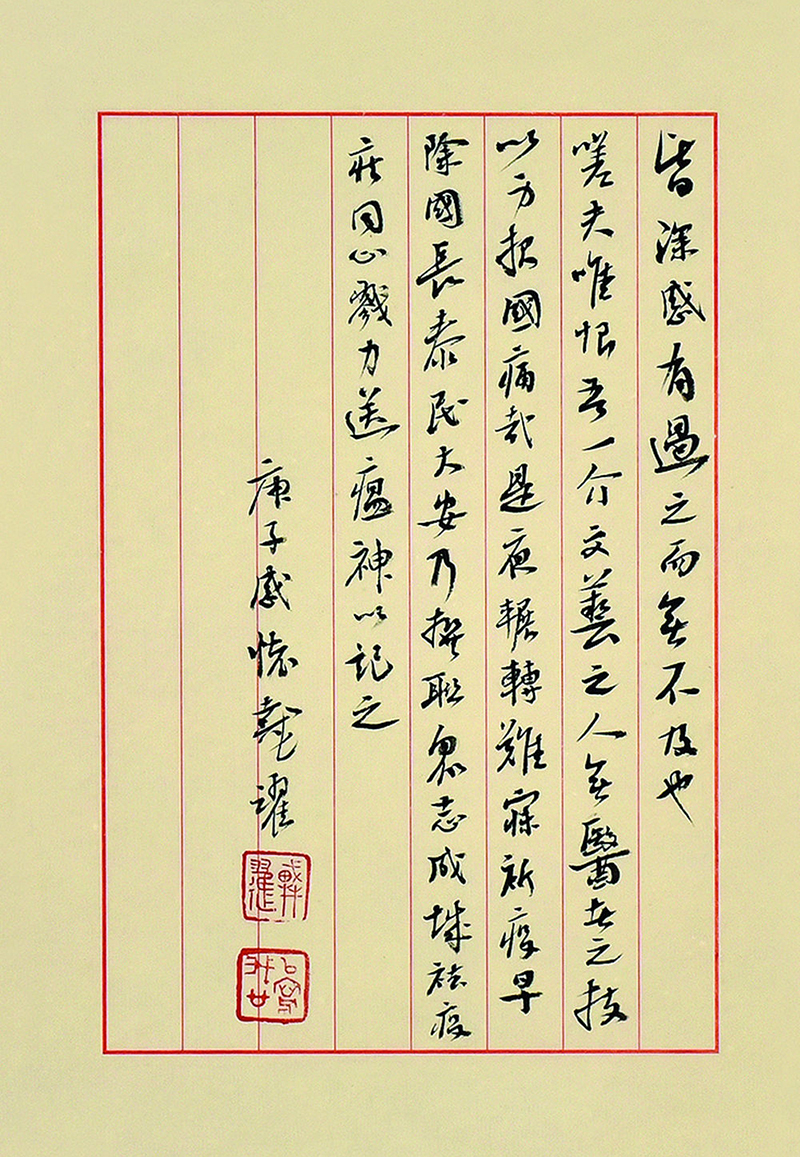 皆深感有過之而無不及也
嗟夫唯恨吾一介文藝之人無醫世之技
以方報國痛哉是夜輾轉難寐祈疫早
除國長泰民大安乃撰聯眾志成城祛疫
症同心戮力送瘟神以記之
庚子感懷戴耀
戴耀